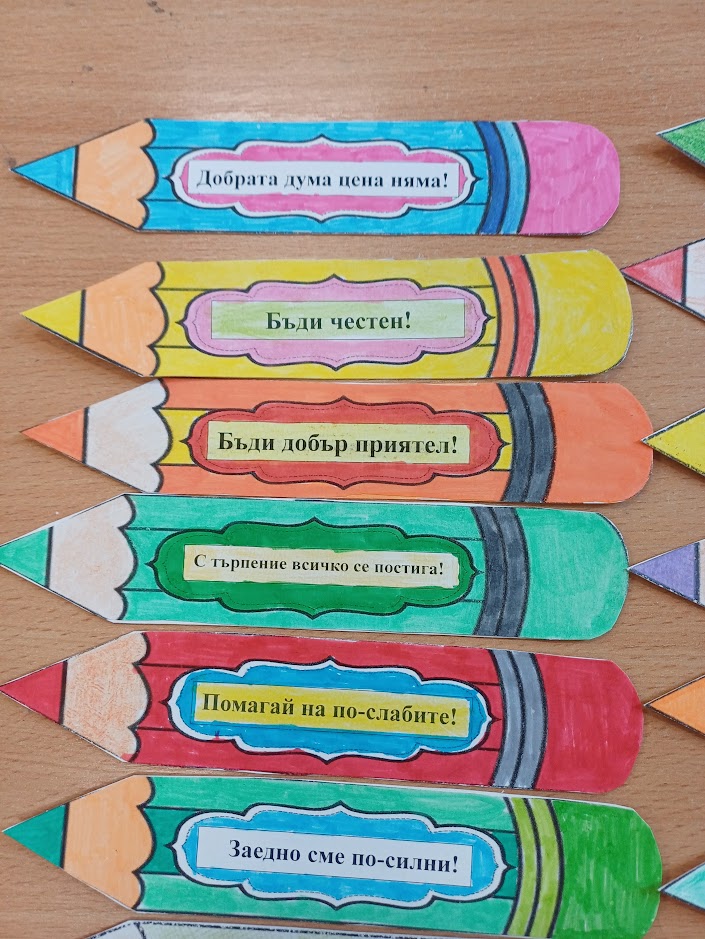 Добрата дума цена няма!
Бъди честен!
Бъди добър приятел!
С търпение всичко се постига!
Помагай на по-слабите!
Заедно сме по-силни!